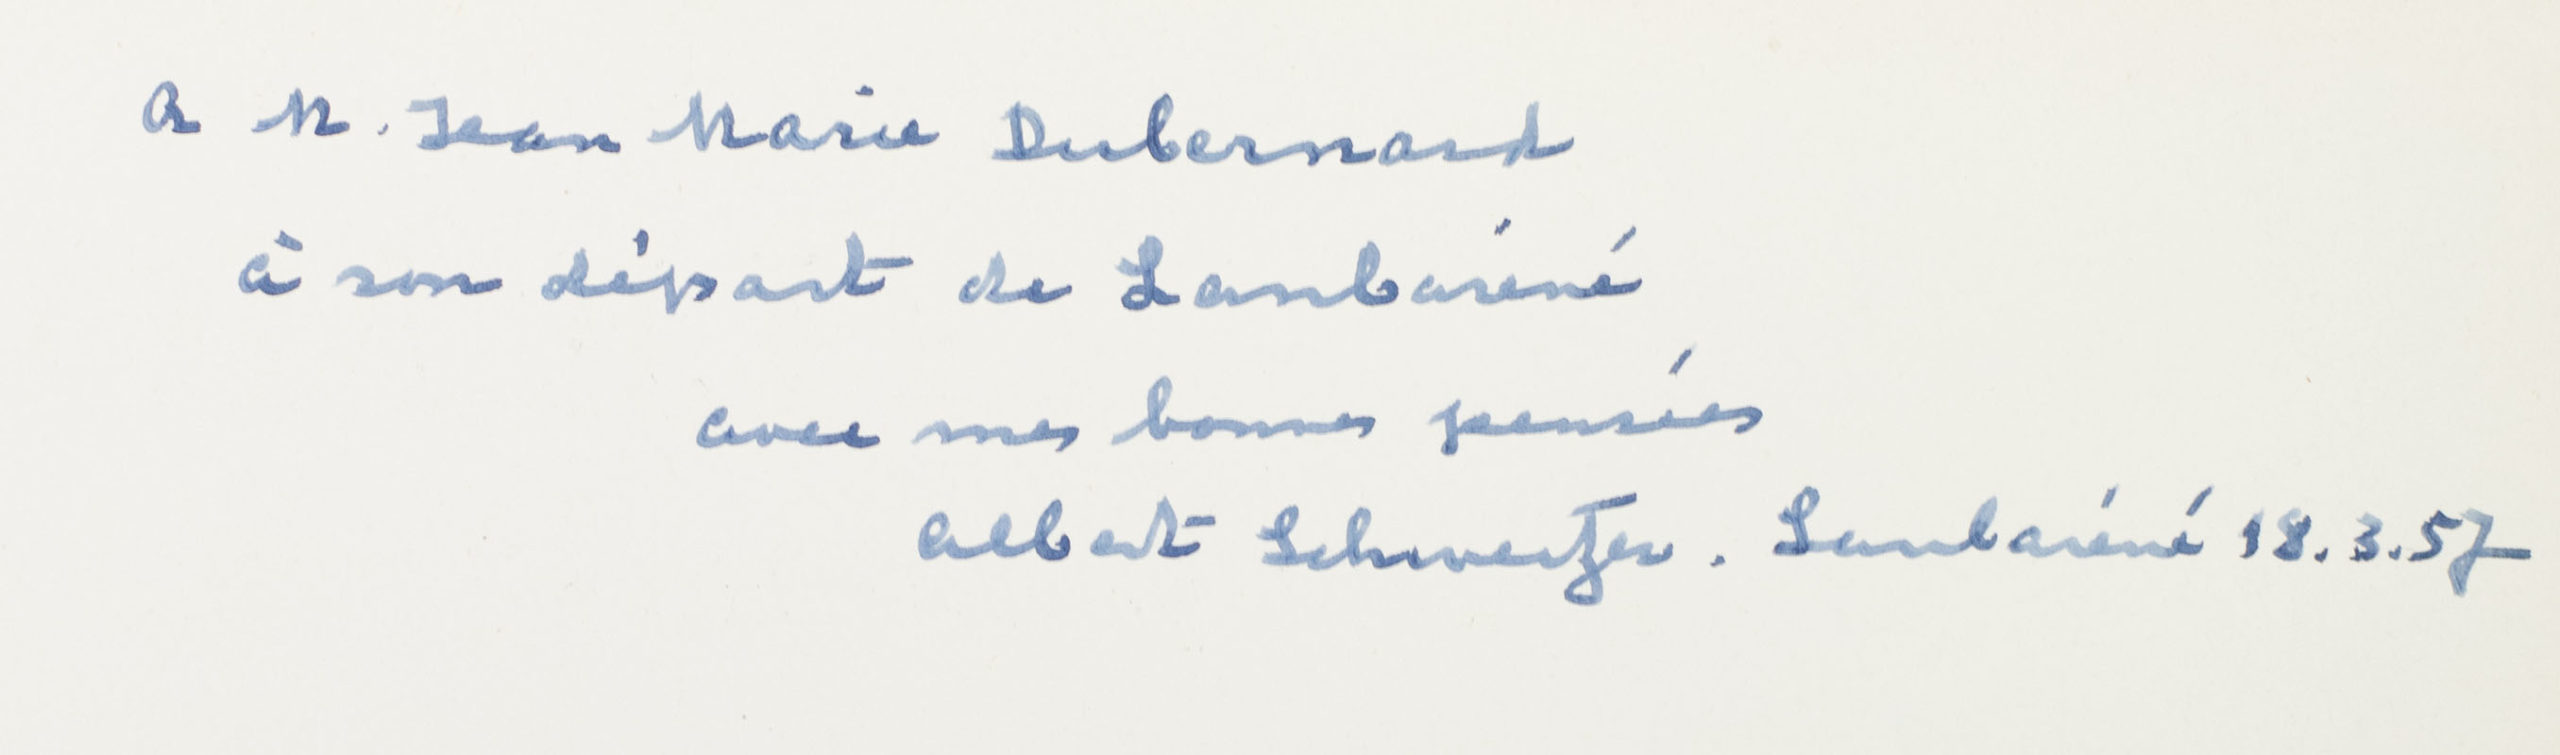 A M. Jean Marie Dubernard
à son départ de Lambaréné
avec mes bonnes pensées
Albert Schweitzer. Lambaréné 18.3.57